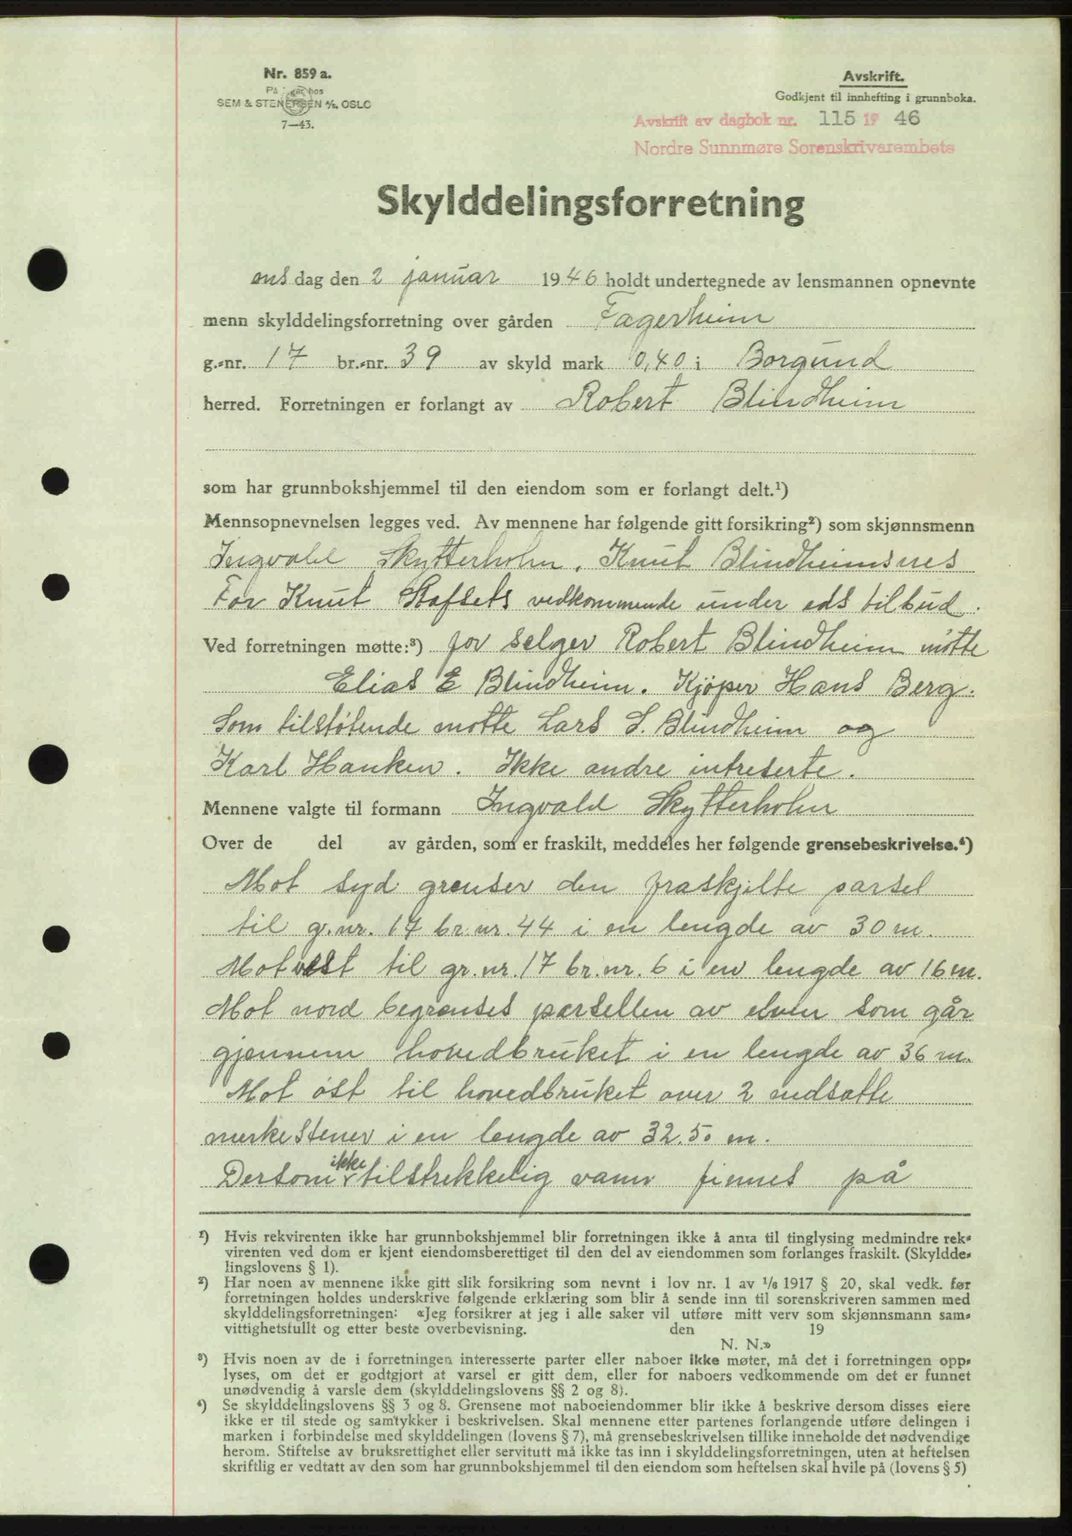 Nr. 859 a.
På lager hos
SEM & STENERSEN A/S, OSLO
7—43.
Avskrift.
Godkjent til innhefting i grunnboka.
Avskrift av dagbok nr. 115 19 46
Nordre Sunnmøre Sorenskrivarembete
Skylddelingsforretning
ons dag den 2 januar 1946 holdt undertegnede av lensmannen opnevnte
menn skylddelingsforretning over gården Fagerheim
g.-nr. 17 br.-nr. 39 av skyld mark 0,40 i Borgund
herred. Forretningen er forlangt av Robert Blindheim
som har grunnbokshjemmel til den eiendom som er forlangt delt.¹)
Mennsopnevnelsen legges ved. Av mennene har følgende gitt forsikring²) som skjønnsmenn
Ingvald Skytterholm. Knut Blindheimsnes
For Knut Stafsets vedkommende under eds tilbud.
Ved forretningen møtte:³) for selger Robert Blindheim møtte
Elias E Blindheim. Kjøper Hans Berg.
Som tilstøtende møtte Lars S. Blindheim og
Karl Hanken. Ikke andre intreserte.
Mennene valgte til formann Ingvald Skytterholm
Over de del av gården, som er fraskilt, meddeles her følgende grensebeskrivelse.⁴)
Mot syd grenser den fraskjilte parsel
til g.nr. 17 br.nr. 44 i en lengde av 30 m.
Mot vest til gr.nr. 17 br.nr. 6 i en lengde av 16 m.
Mot nord begrenses parsellen av elven som går
gjennem hovedbruket i en lengde av 36 m.
Mot øst til hovedbruket over 2 nedsatte
merkestener i en lengde av 32.50 m.
Dersom ikke tilstrekkelig vann finnes på
¹) Hvis rekvirenten ikke har grunnbokshjemmel blir forretningen ikke å anta til tinglysing medmindre rek-
virenten ved dom er kjent eiendomsberettiget til den del av eiendommen som forlanges fraskilt. (Skyldde-
lingslovens § 1).
²) Har noen av mennene ikke gitt slik forsikring som nevnt i lov nr. 1 av 1/6 1917 § 20, skal vedk. før
forretningen holdes underskrive følgende erklæring som blir å sende inn til sorenskriveren sammen med
skylddelingsforretningen: «Jeg forsikrer at jeg i alle saker vil utføre mitt verv som skjønnsmann sam-
vittighetsfullt og etter beste overbevisning. den 19
N. N.»
³) Hvis noen av de i forretningen interesserte parter eller naboer ikke møter, må det i forretningen opp-
lyses, om det er godtgjort at varsel er gitt dem, eller for naboers vedkommende om det er funnet
unødvendig å varsle dem (skylddelingslovens §§ 2 og 8).
⁴) Se skylddelingslovens §§ 3 og 8. Grensene mot naboeiendommer blir ikke å beskrive dersom disses eiere
ikke er til stede og samtykker i beskrivelsen. Skal mennene etter partenes forlangende utføre delingen i
marken i forbindelse med skylddelingen (lovens § 7), må grensebeskrivelsen tillike inneholde det nødvendige
herom. Stiftelse av bruksrettighet eller servitutt må ikke tas inn i skylddelingsforretningen, uten at heftelsen
skriftlig er vedtatt av den som har grunnbokshjemmel til den eiendom som heftelsen skal hvile på (lovens § 5)